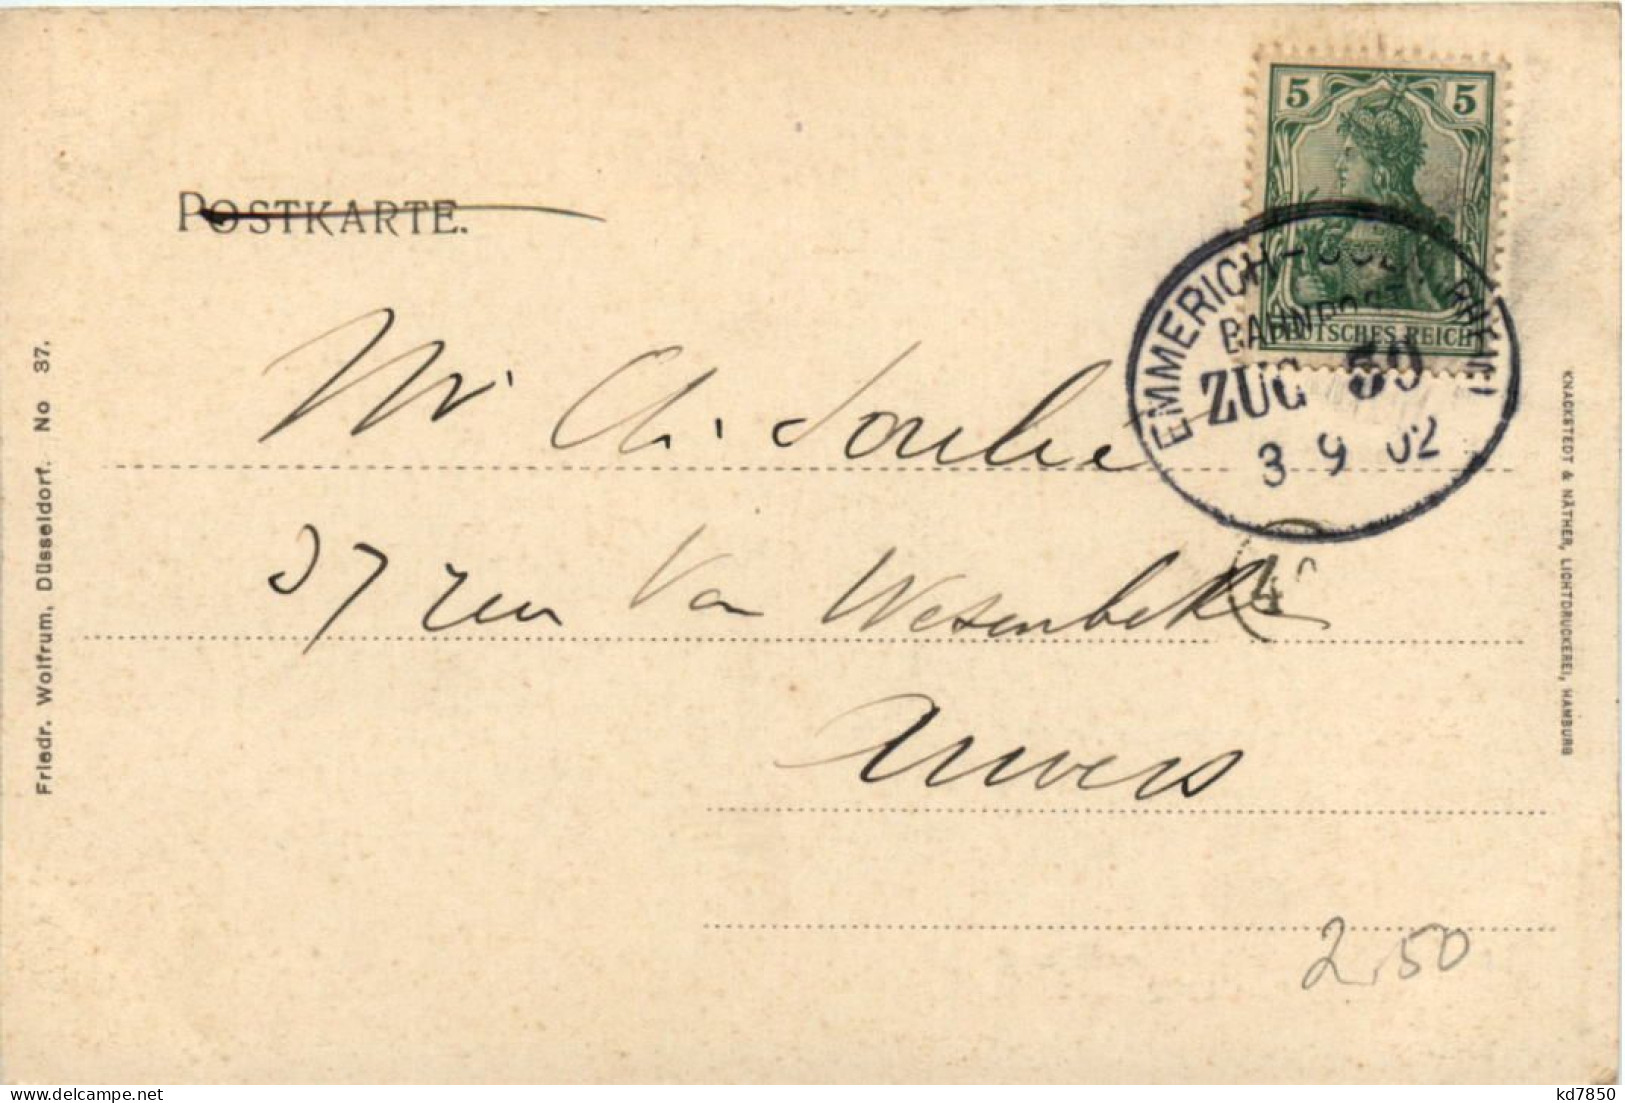 POSTKARTE.
5 5
DEUTSCHES REICH
EMMERICH-
BAHNPOST
ZUG 59
3 9 02
Mr Ch.
37 rue Van Wesenbeke
4
Anvers
2,50
Friedr. Wolfrum, Düsseldorf. No 37.
KNACKSTEDT & NÄTHER, LICHTDRUCKEREI, HAMBURG
kd7850